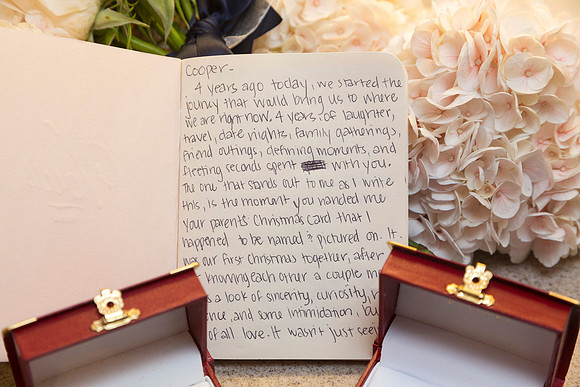 Cooper-
4 years ago today, we started the
journey that would bring us to where
we are right now. 4 years of laughter,
travel, date nights, family gatherings,
friend outings, defining moments, and
fleeting seconds spent with you.
The one that stands out to me as I write
this, is the moment you handed me
your parents Christmas Card that I
happened to be named & pictured on. It
our first Christmas together, after
knowing each other a couple
a look of sincerity, curiosity,
and some intimidation,
of all love. It wasn't just